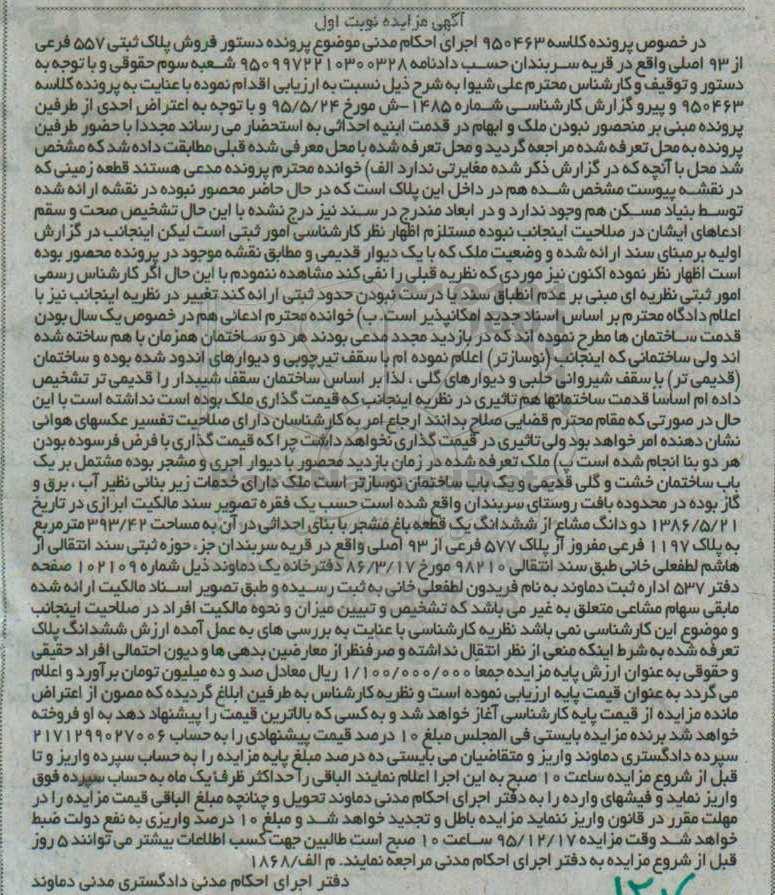 آگهی مزایده نوبت اول
در خصوص پرونده کلاسه ۹۵۰۴۶۳ اجرای احکام مدنی موضوع پرونده دستور فروش پلاک ثبتی ۵۵۷ فرعی
از ۹۳ اصلی واقع در قریه سربندان حسب دادنامه ۹۵۰۹۹۷۲۲۱۰۳۰۰۳۲۸ شعبه سوم حقوقی و با توجه به
دستور و توقیف و کارشناس محترم علی شیوا به شرح ذیل نسبت به ارزیابی اقدام نموده با عنایت به پرونده کلاسه
۹۵۰۴۶۳ و پیرو گزارش کارشناسی شماره ۱۴۸۵-ش مورخ ۹۵/۵/۲۴ و با توجه به اعتراض احدی از طرفین
پرونده مبنی بر منحصور نبودن ملک و ابهام در قدمت ابنیه احداثی به استحضار می رساند مجددا با حضور طرفین
پرونده به محل تعرفه شده مراجعه گردید و محل تعرفه شده با محل معرفی شده قبلی مطابقت داده شد که مشخص
شد محل با آنچه که در گزارش ذکر شده مغایرتی ندارد الف) خوانده محترم پرونده مدعی هستند قطعه زمینی که
در نقشه پیوست مشخص شده هم در داخل این پلاک است که در حال حاضر محصور نبوده در نقشه ارائه شده
توسط بنیاد مسکن هم وجود ندارد و در ابعاد مندرج در سند نیز درج نشده با این حال تشخیص صحت و سقم
ادعاهای ایشان در صلاحیت اینجانب نبوده مستلزم اظهار نظر کارشناسی امور ثبتی است لیکن اینجانب در گزارش
اولیه بر مبنای سند ارائه شده و وضعیت ملک که با یک دیوار قدیمی و مطابق نقشه موجود در پرونده محصور بوده
است اظهار نظر نموده اکنون نیز موردی که نظریه قبلی را نفی کند مشاهده ننمودم با این حال اگر کارشناس رسمی
امور ثبتی نظریه ای مبنی بر عدم انطباق سند یا درست نبودن حدود ثبتی ارائه کند تغییر در نظریه اینجانب نیز با
اعلام دادگاه محترم بر اساس اسناد جدید امکانپذیر است. ب) خوانده محترم ادعائی هم در خصوص یک سال بودن
قدمت ساختمان ها مطرح نموده اند که در بازدید مجدد مدعی بودند هر دو ساختمان همزمان با هم ساخته شده
اند ولی ساختمانی که اینجانب (نوسازتر) اعلام نموده ام با سقف تیرچوبی و دیوارهای اندود شده بوده و ساختمان
(قدیمی تر) با سقف شیروانی حلبی و دیوارهای گلی ، لذا بر اساس ساختمان سقف شیبدار را قدیمی تر تشخیص
داده ام اساسا قدمت ساختمانها هم تاثیری در نظریه اینجانب که قیمت گذاری ملک بوده است نداشته است با این
حال در صورتی که مقام محترم قضایی صلاح بدانند ارجاع امر به کارشناسان دارای صلاحیت تفسیر عکسهای هوائی
نشان دهنده امر خواهد بود ولی تاثیری در قیمت گذاری نخواهد داشت چرا که قیمت گذاری با فرض فرسوده بودن
هر دو بنا انجام شده است پ) ملک تعرفه شده در زمان بازدید محصور با دیوار اجری و مشجر بوده مشتمل بر یک
باب ساختمان خشت و گلی قدیمی و یک باب ساختمان نوسازتر است ملک دارای خدمات زیر بنائی نظیر آب ، برق و
گاز بوده در محدوده بافت روستای سربندان واقع شده است حسب یک فقره تصویر سند مالکیت ابرازی در تاریخ
۱۳۸۶/۵/۲۱ دو دانگ مشاع از ششدانگ یک قطعه باغ مشجر با بنای احداثی در آن به مساحت ۳۹۳/۴۲ مترمربع
به پلاک ۱۱۹۷ فرعی مفروز از پلاک ۵۷۷ فرعی از ۹۳ اصلی واقع در قریه سربندان جزء حوزه ثبتی سند انتقالی از
هاشم لطفعلی خانی طبق سند انتقالی ۹۸۲۱۰ مورخ ۸۶/۳/۱۷ دفترخانه یک دماوند ذیل شماره ۱۰۲۱۰۹ صفحه
دفتر ۵۳۷ اداره ثبت دماوند به نام فریدون لطفعلی خانی به ثبت رسیده و طبق تصویر اسناد مالکیت ارائه شده
مابقی سهام مشاعی متعلق به غیر می باشد که تشخیص و تبیین میزان و نحوه مالکیت افراد در صلاحیت اینجانب
و موضوع این کارشناسی نمی باشد نظریه کارشناسی با عنایت به بررسی های به عمل آمده ارزش ششدانگ پلاک
تعرفه شده به شرط اینکه منعی از نظر انتقال نداشته و صرفنظر از معارضین بدهی ها و دیون احتمالی افراد حقیقی
و حقوقی به عنوان ارزش پایه مزایده جمعا ۱/۱۰۰/۰۰۰/۰۰۰ ریال معادل صد و ده میلیون تومان برآورد و اعلام
می گردد به عنوان قیمت پایه ارزیابی نموده است و نظریه کارشناس به طرفین ابلاغ گردیده که مصون از اعتراض
مانده مزایده از قیمت پایه کارشناسی آغاز خواهد شد و به کسی که بالاترین قیمت را پیشنهاد دهد به او فروخته
خواهد شد برنده مزایده بایستی فی المجلس مبلغ ۱۰ درصد قیمت پیشنهادی را به حساب ۲۱۷۱۲۹۹۰۲۷۰۰۶
سپرده دادگستری دماوند واریز و متقاضیان می بایستی ده درصد مبلغ پایه مزایده را به حساب سپرده واریز و تا
قبل از شروع مزایده ساعت ۱۰ صبح به این اجرا اعلام نمایند الباقی را حداکثر ظرف یک ماه به حساب سپرده فوق
واریز نماید و فیشهای وارده را به دفتر اجرای احکام مدنی دماوند تحویل و چنانچه مبلغ الباقی قیمت مزایده را در
مهلت مقرر در قانون واریز ننماید مزایده باطل و تجدید خواهد شد و مبلغ ۱۰ درصد واریزی به نفع دولت ضبط
خواهد شد وقت مزایده ۹۵/۱۲/۱۷ ساعت ۱۰ صبح است طالبین جهت کسب اطلاعات بیشتر می توانند ۵ روز
قبل از شروع مزایده به دفتر اجرای احکام مدنی مراجعه نمایند. م الف/۱۸۶۸
دفتر اجرای احکام مدنی دادگستری مدنی دماوند